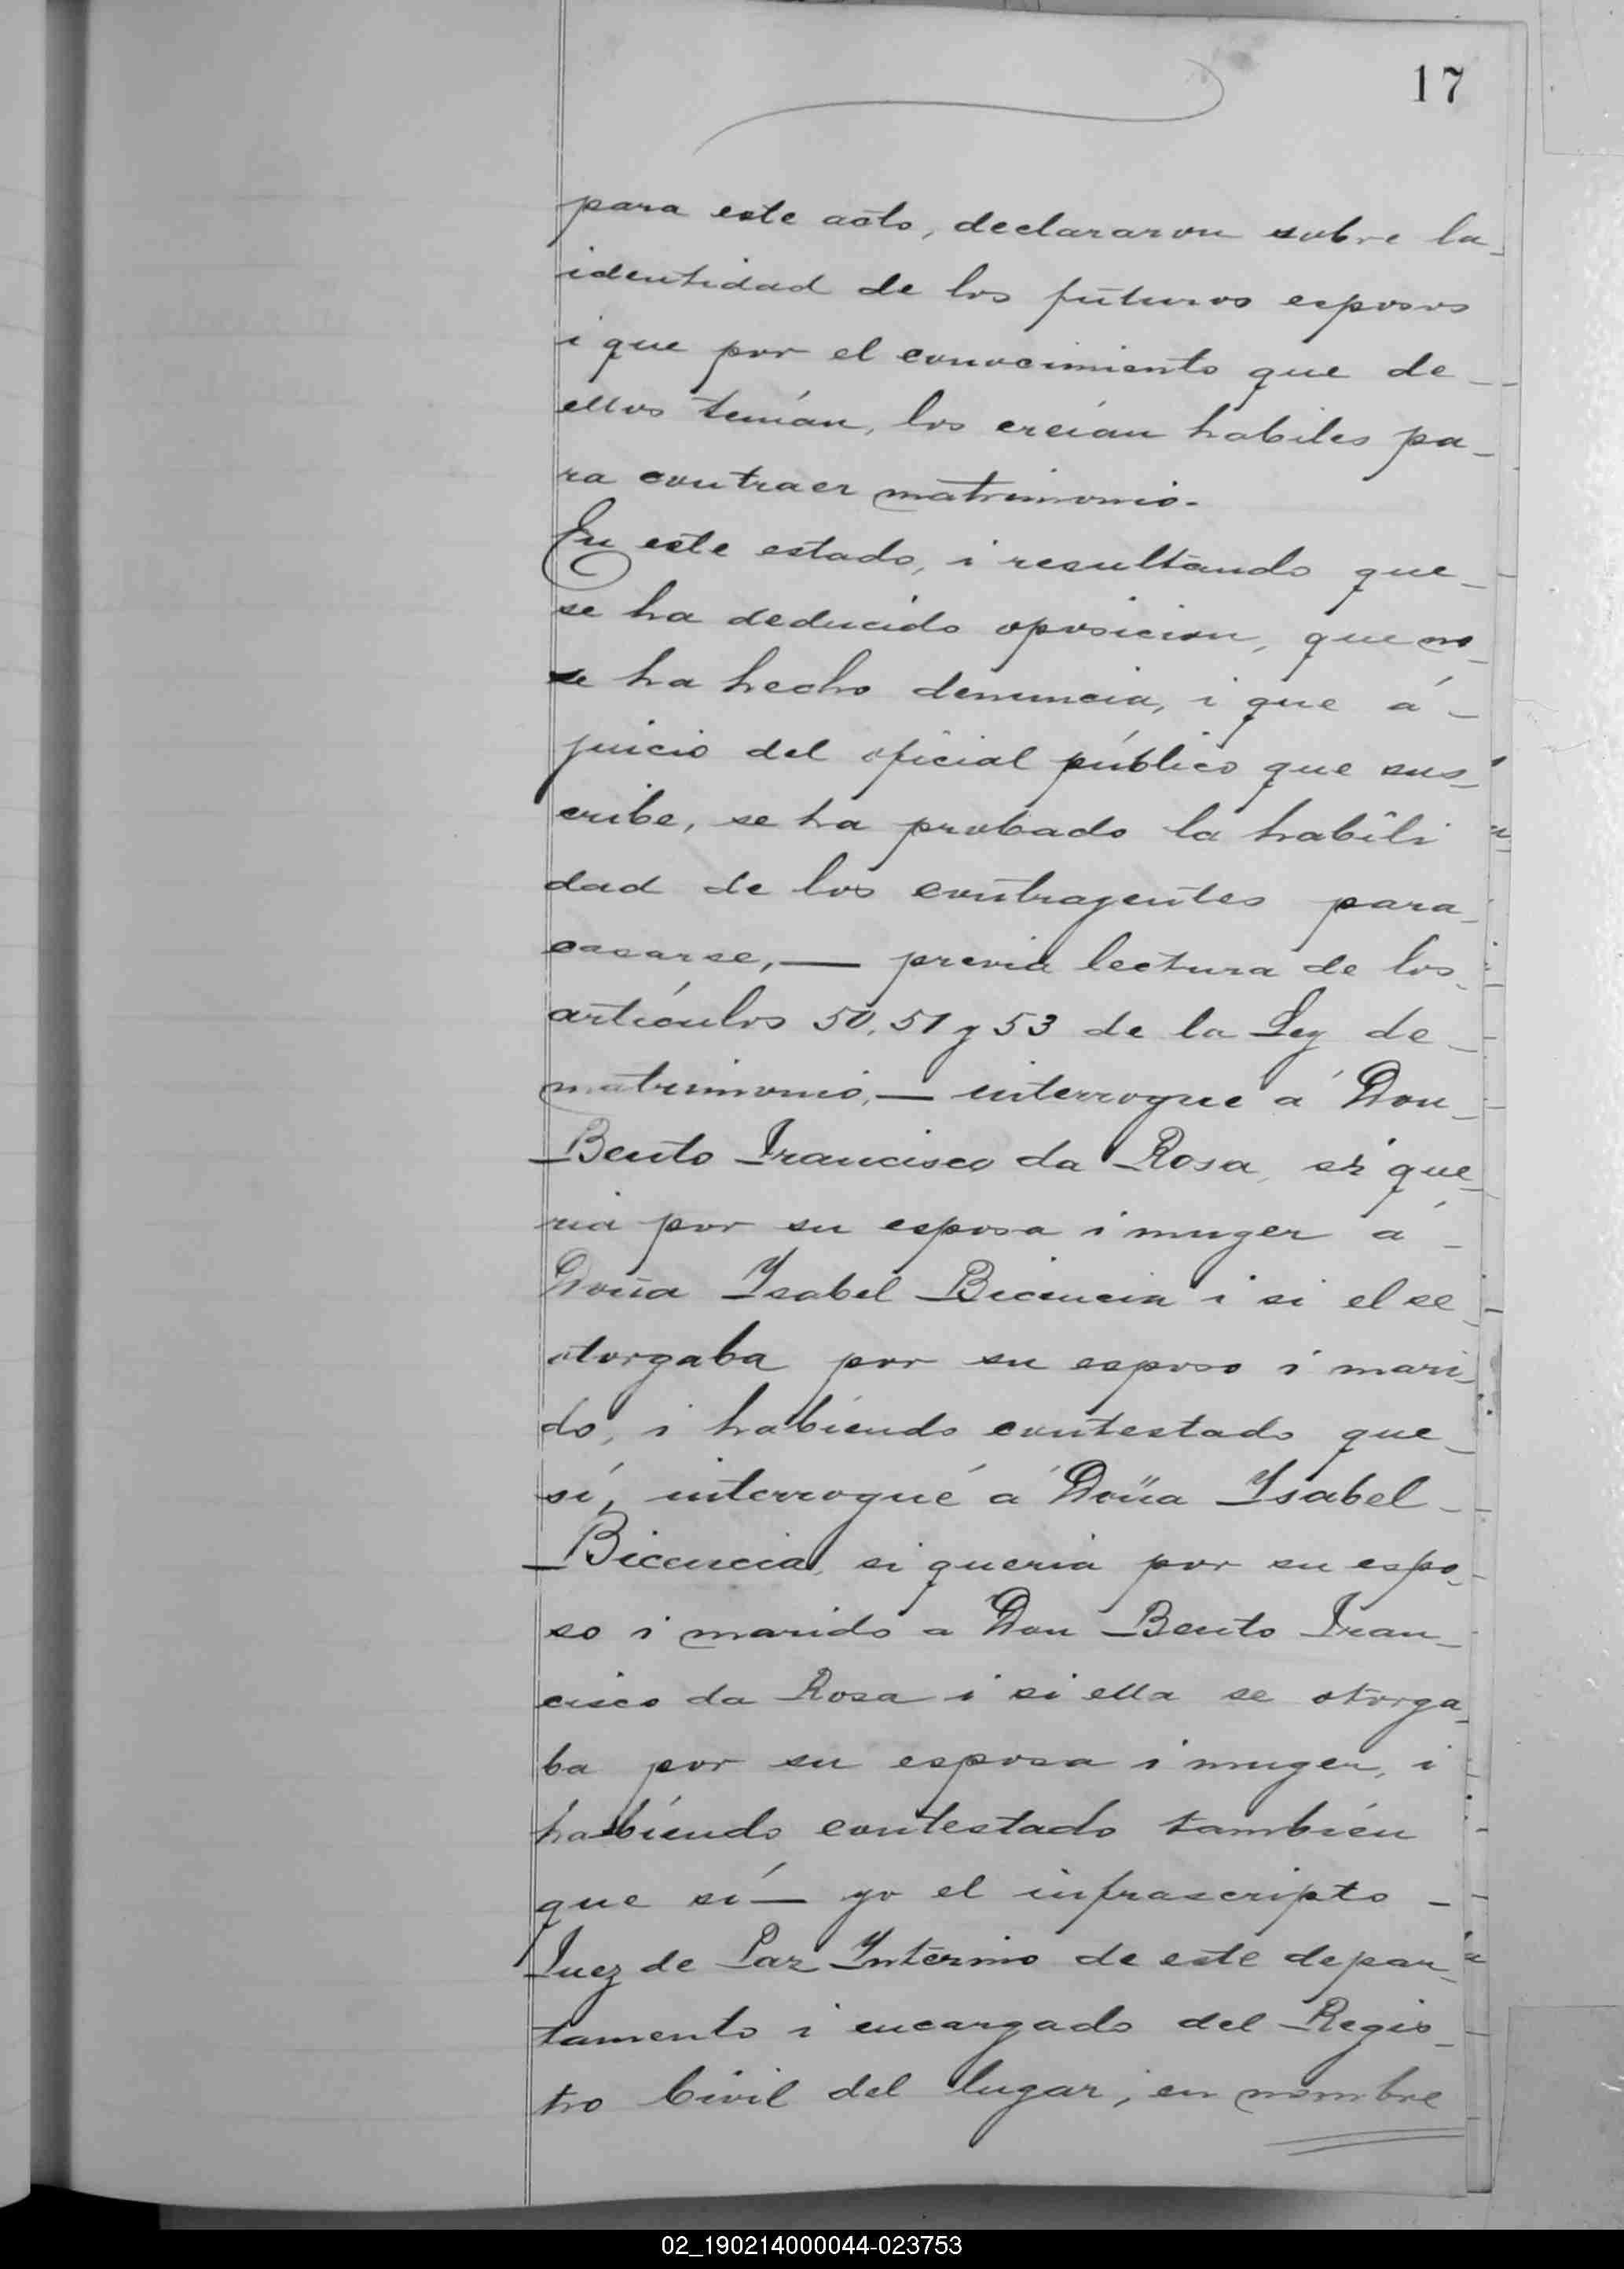 17
para este acto, declararon sobre la
identidad de los futuros esposos
i que por el conocimiento que de
ellos tenían, los creían habiles pa-
ra contraer matrimonio.
En este estado, i resultando que
se ha deducido oposicion, que no
se ha hecho denuncia, i que á
juicio del oficial público que sus-
cribe, se ha probado la habili
dad de los contragentes para
casarse, — previa lectura de los
artículos 50, 51 y 53 de la Ley de
matrimonio, — interrogue á Don
Bento Francisco da Rosa, si que-
ria por su esposa i muger á
Doña Ysabel Bicencia i si el se
otorgaba por su esposo i mari-
do, i habiendo contestado que
sí, interrogué á Doña Ysabel
Bicencia, si queria por su espo-
so i marido a Don Bento Fran-
cisco da Rosa i si ella se otorga-
ba por su esposa i muger, i
habiendo contestado también
que sí — yo el infrascripto
Juez de Paz Interino de este depar-
tamento i encargado del Regis-
tro Civil del lugar, en nombre
02_190214000044-023753